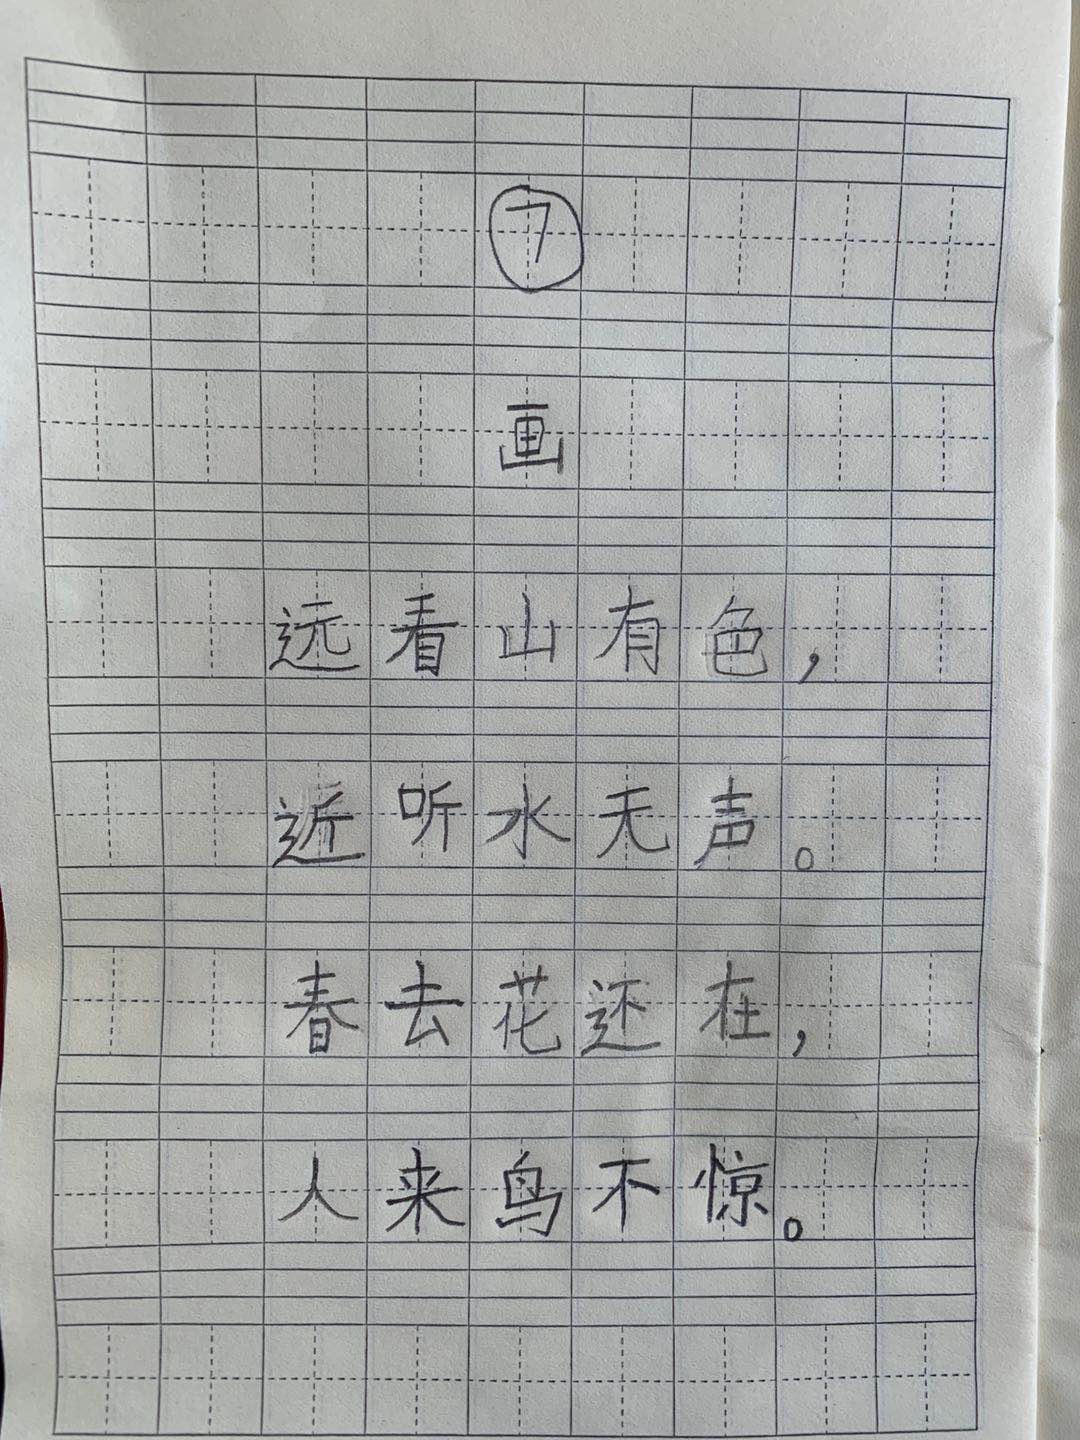 ⑦
画
远看山有色，
近听水无声。
春去花还在，
人来鸟不惊。